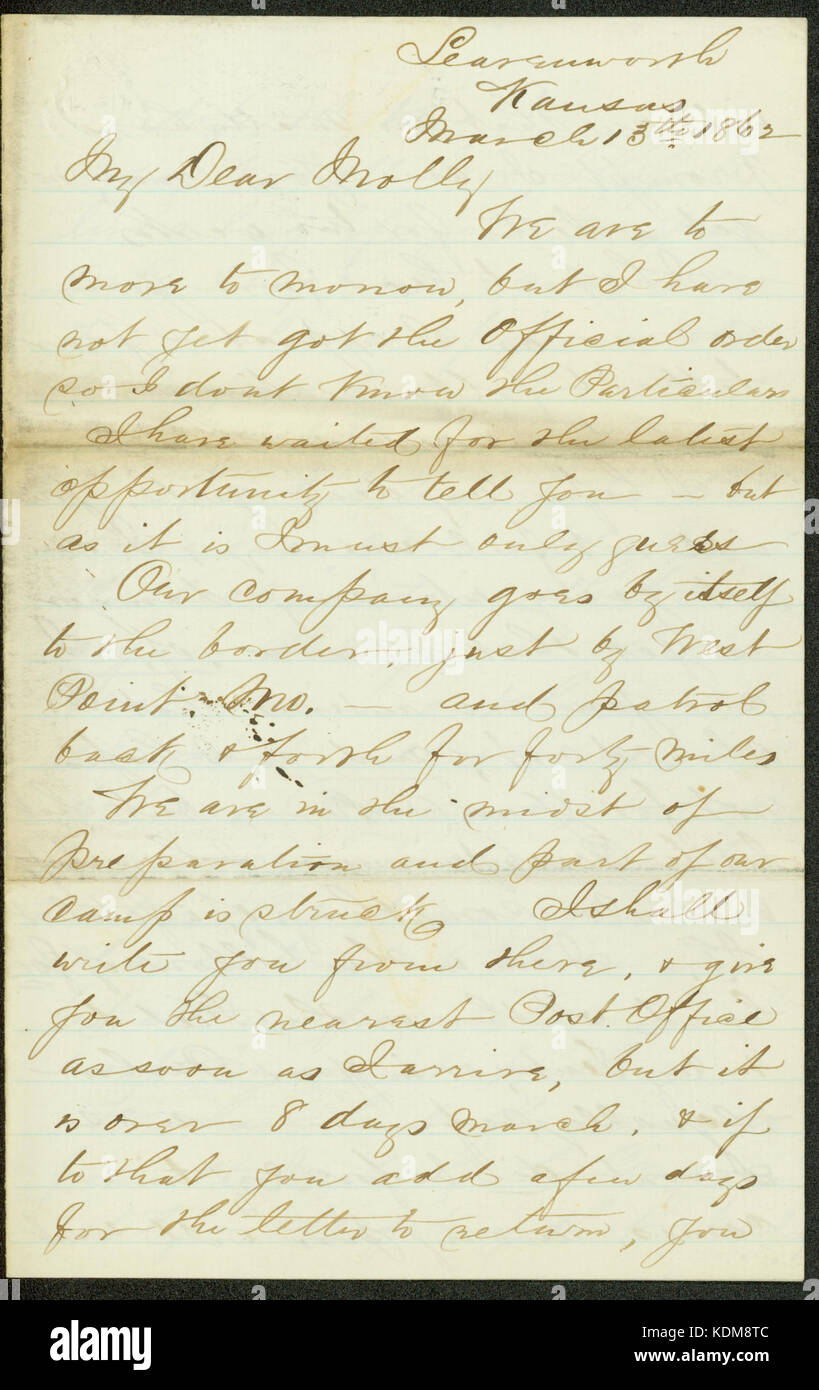 Leavenworth
Kansas
March 13th 1862
My Dear Molly
We are to
move to morrow, but I have
not yet got the Official order
so I dont Know the Particulars
I have waited for the latest
opportunity to tell you – but
as it is I must only guess
Our company goes by itself
to the border, just by West
Point Mo. – and patrol
back & forth for forty miles
We are in the midst of
preparation and part of our
camp is struck I shall
write you from there, & give
you the nearest Post. Office
as soon as I arrive, but it
is over 8 days march, & if
to that you add a few days
for the letter to return, you
alamy
alamy
Image ID: KDM8TC
www.alamy.com